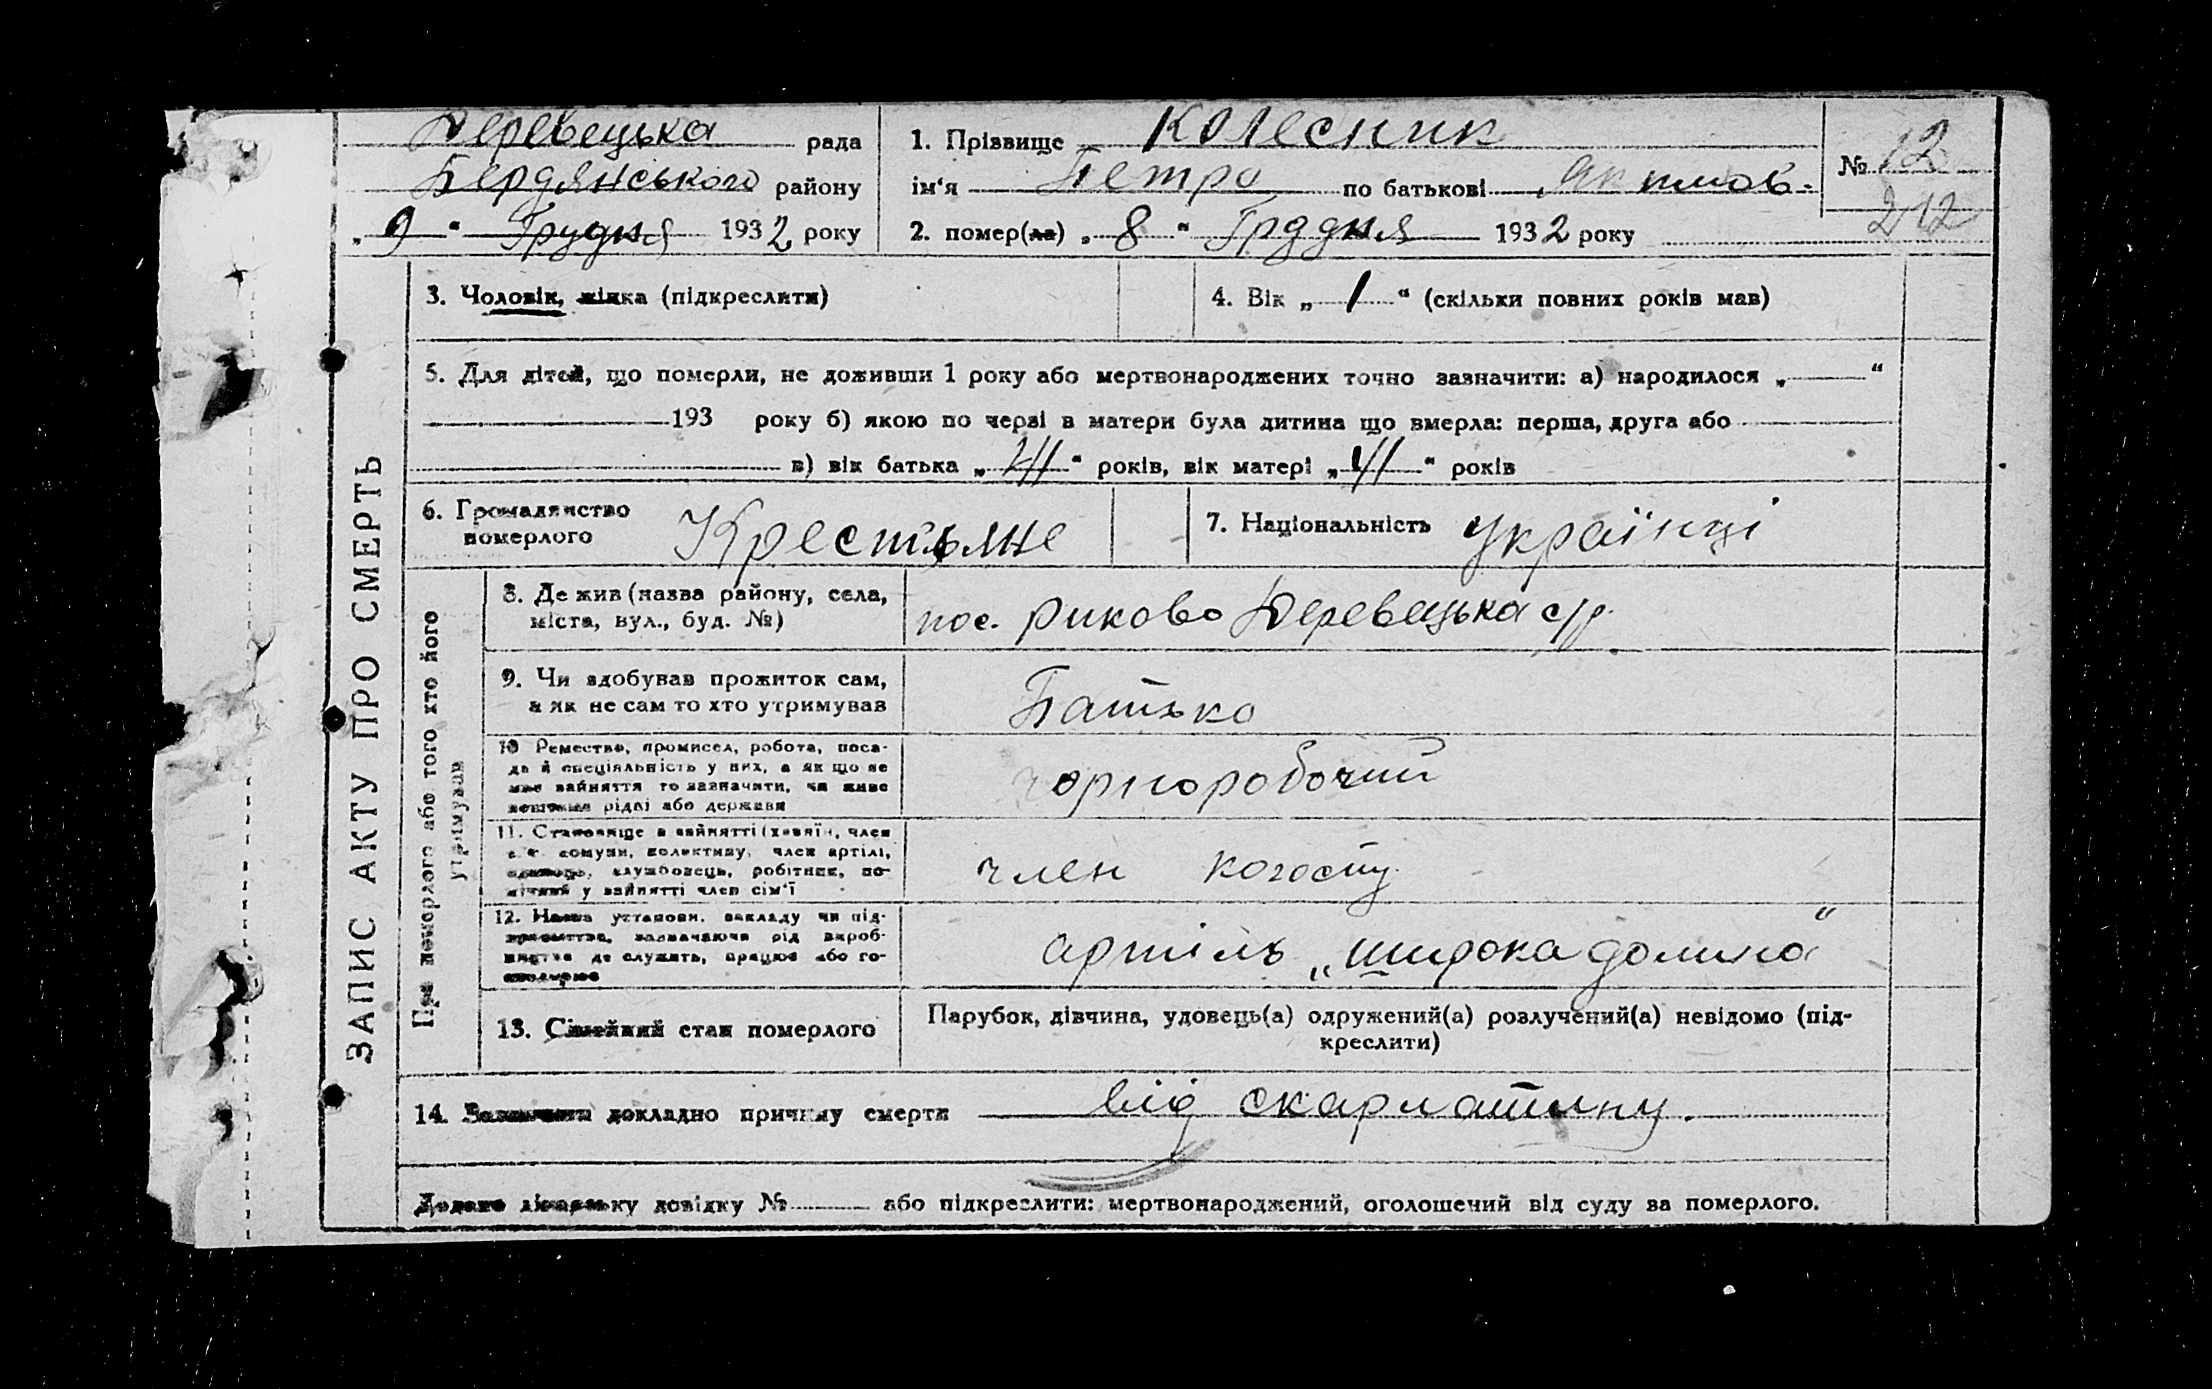 Деревецька рада
Бердянського району
„ 9 " Грудня 1932 року
1. Прізвище Колесник
ім'я Петро по батькові
2. помер(ла) „ 8 " Грддня 1932 року
№ 12
212
ЗАПИС АКТУ ПРО СМЕРТЬ
3. Чоловік, жінка (підкреслити)
4. Вік „ 1 " (скільки повних років мав)
5. Для дітей, що померли, не доживши 1 року або мертвонароджених точно зазначити: а) народилося „ "
193 року б) якою по черзі в матери була дитина що вмерла: перша, друга або
в) вік батька „ " років, вік матері „ " років
6. Громадянство
померлого
Крестьяне
7. Національність українці
При померлого або того хто його
утримував
8. Де жив (назва району, села,
міста, вул., буд. №)
пос. Риково Деревецька с/р.
9. Чи здобував прожиток сам,
а як не сам то хто утримував
Батько
10 Ремество, промисел, робота, поса-
да й спеціяльність у них, а як що не
має зайняття то зазначити, чи живе
коштами рідні або держави
чорноробочий
11. Становище в зайнятті (хазяїн, член
с.-г. комуни, колективу, член артілі,
одинець, службовець, робітник, по-
мічний у зайнятті член сім'ї
член когоспу
12. Назва установи, закладу чи під-
приємства, зазначаючи рід вироб-
ництва де служить, працює або го-
сподарює
артіль „широка долина"
13. Сімейний стан померлого
Парубок, дівчина, удовець(а) одружений(а) розлучений(а) невідомо (під-
креслити)
14. Зазначити докладно причину смерти від скарлатини.
Додано лікарську довідку № або підкреслити: мертвонароджений, оголошечий від суду за померлого.